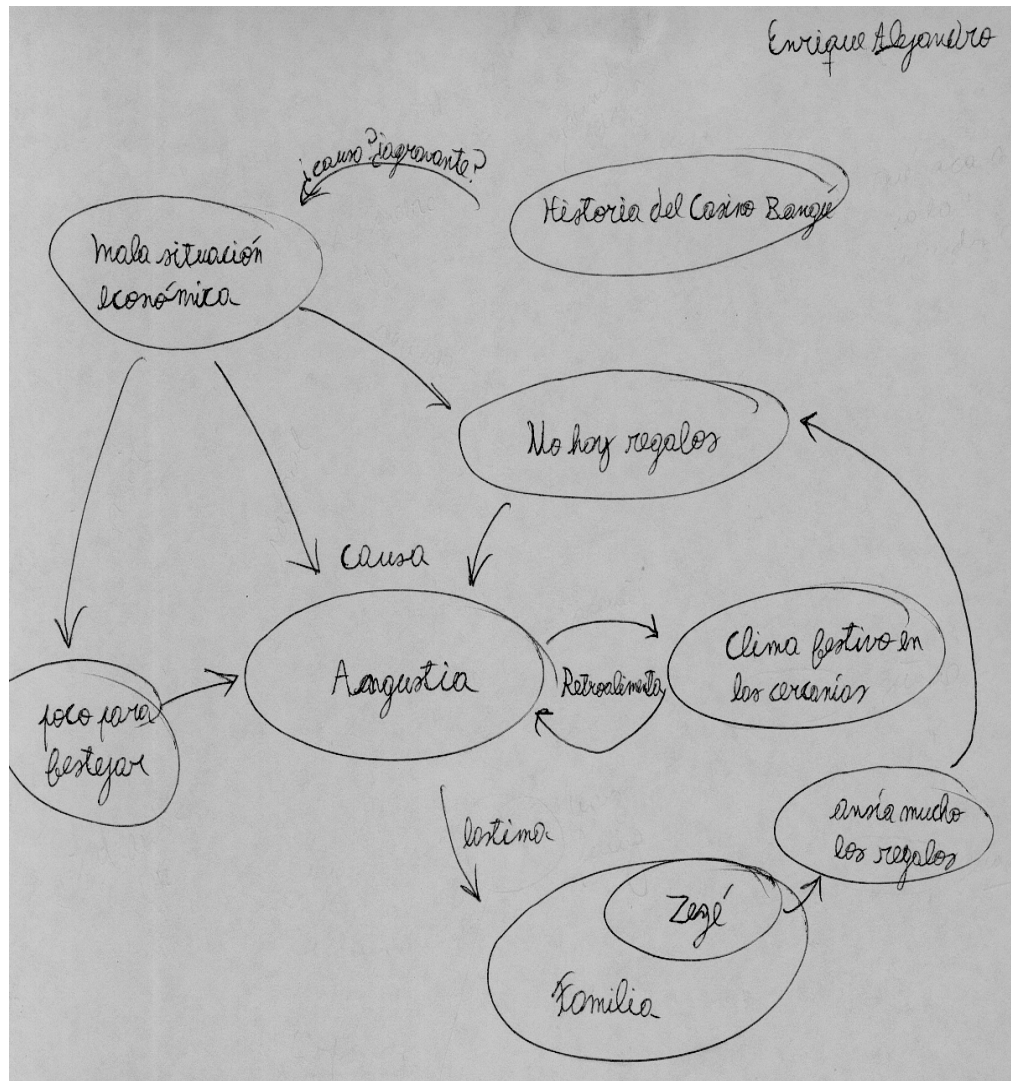 Enrique Alejandro
¿causa? ¿agravante?
Historia del Casino Bangú
mala situación
económica
No hay regalos
causa
Angustia
Retroalimenta
Clima festivo en
las cercanías
poco para
festejar
lastima
ansía mucho
los regalos
Zezé
Familia